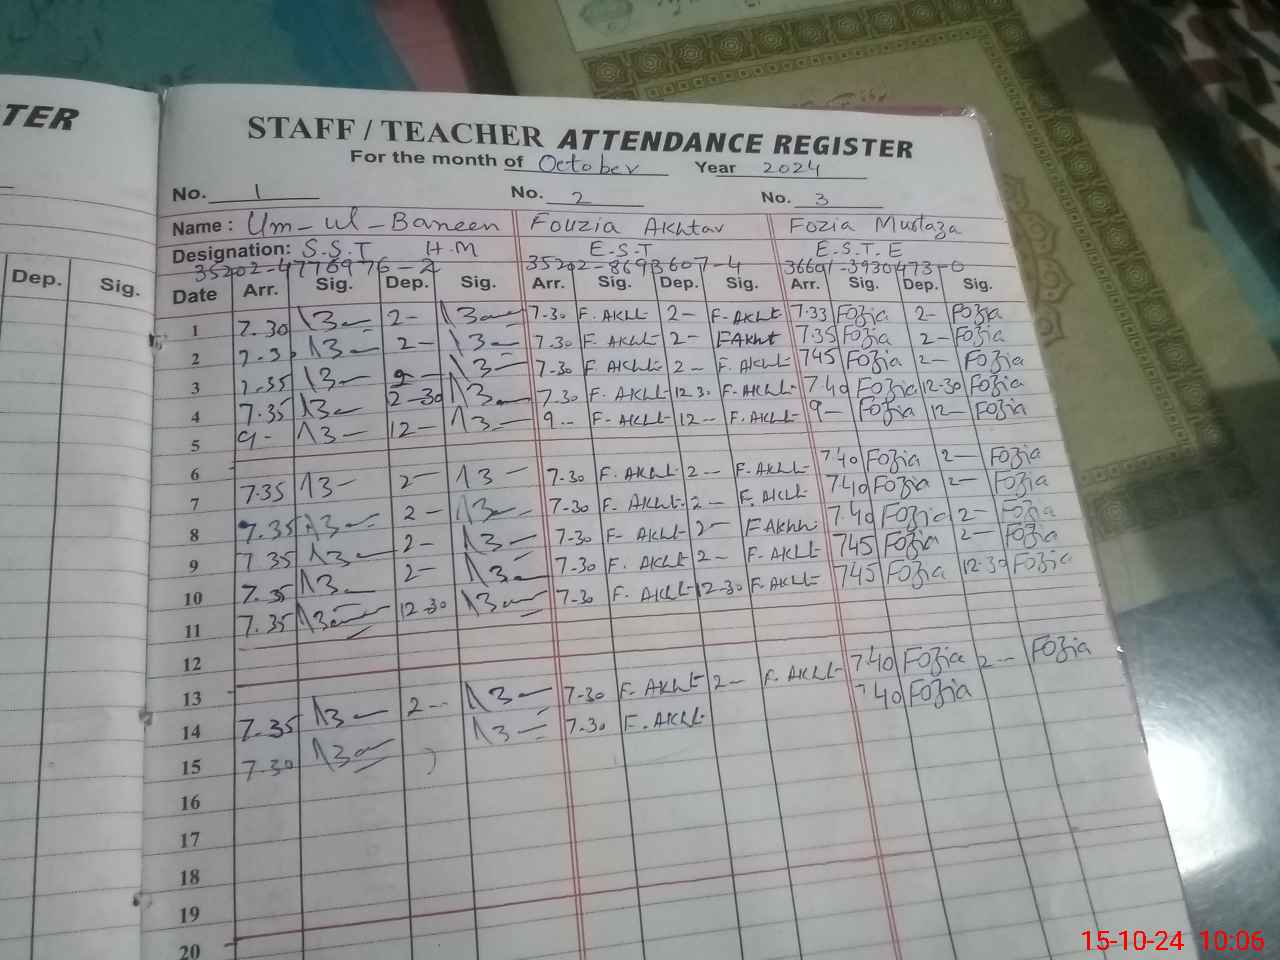 TER
STAFF / TEACHER ATTENDANCE REGISTER
For the month of October Year 2024
No. 1 No. 2 No. 3
Name : Um-ul-Baneen Fouzia Akhtar Fozia Murtaza
Designation: S.S.T H.M E.S.T E.S.T.E
35202-4776976-2 35202-8693607-4 36691-3930473-0
Dep. Sig. Date Arr. Sig. Dep. Sig. Arr. Sig. Dep. Sig. Arr. Sig. Dep. Sig.
1 7.30 2- 7-30 F. AKht 2- F-AKht 7.33 Fozia 2- Fozia
2 2- 7.30 F. AKht 2- FAkht 7.35 Fozia 2- Fozia
3 7.35 7-30 F. AKht 2- F. AKht 745 Fozia 2- Fozia
4 7.35 2-30 7-30 F. AKht 12.30 F. AKht 7.40 Fozia 12-30 Fozia
5 9- 12- 9 -- F- AKht 12- F. AKht 9- Fozia 12- Fozia
6
7 7.35 2- 7-30 F. AKht 2- F. AKht 7.40 Fozia 2- Fozia
8 7.35 2- 7-30 F. AKht 2- F. AKht 740 Fozia 2- Fozia
9 7.35 2- 7-30 F- AKht 2- FAkht 7.40 Fozia 2- Fozia
10 7.35 2- 7-30 F. AKht 2- F. AKht 745 Fozia 2- Fozia
11 7.35 12-30 7-30 F. AKht 12-30 F. AKht 745 Fozia 12-30 Fozia
12
13
14 7.35 2-- 7-30 F. AKht 2- F. AKht 7.40 Fozia 2- Fozia
15 7.30 7-30 F. AKht 740 Fozia
16
17
18
19
20
15-10-24 10:06